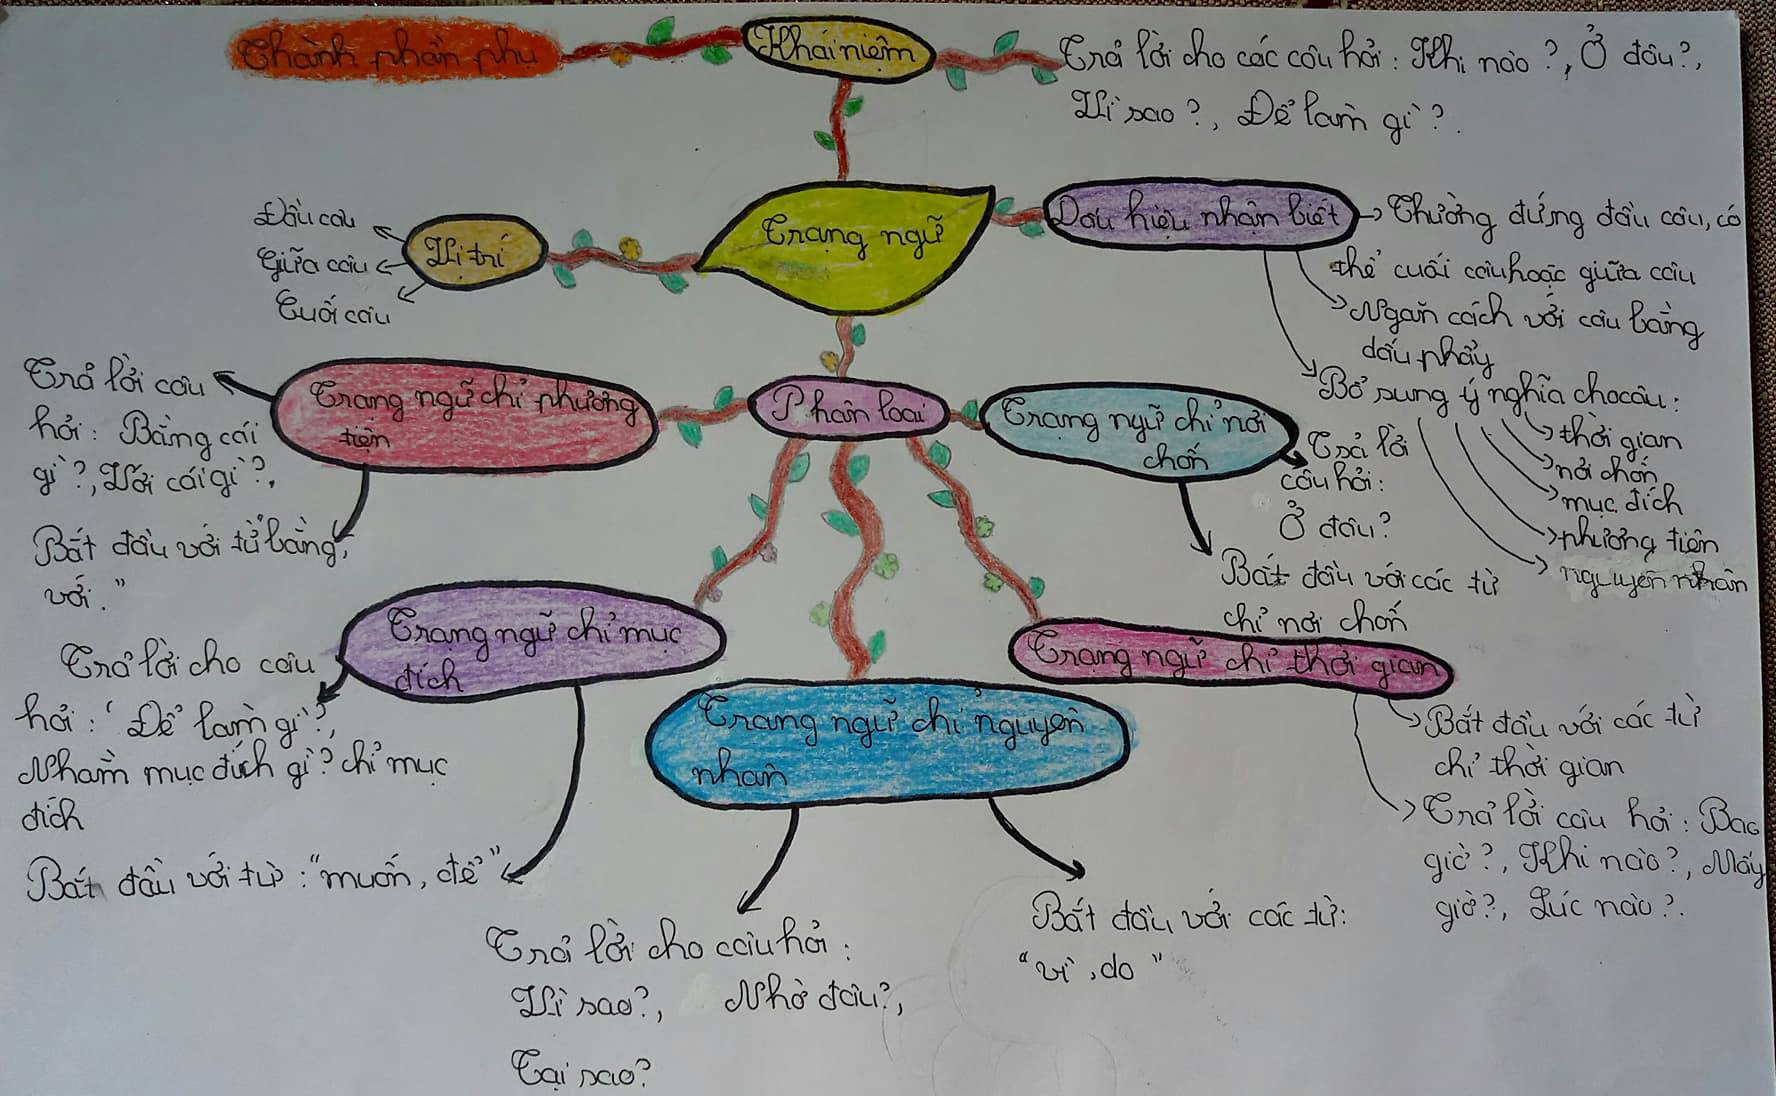 Thành phần phụ
Khái niệm
Trả lời cho các câu hỏi : Khi nào ?, Ở đâu?,
Vì sao ?, Để làm gì ?.
Trạng ngữ
Vị trí
Đầu câu
Giữa câu
Cuối câu
Dấu hiệu nhận biết
Thường đứng đầu câu, có
thể cuối câu hoặc giữa câu
Ngăn cách với câu bằng
dấu phẩy
Bổ sung ý nghĩa cho câu :
thời gian
nơi chốn
mục đích
phương tiện
nguyên nhân
Phân loại
Trạng ngữ chỉ phương
tiện
Trả lời câu
hỏi : Bằng cái
gì ?, Với cái gì ?,
Bắt đầu với từ "bằng,
với."
Trạng ngữ chỉ nơi
chốn
Trả lời
câu hỏi :
Ở đâu?
Bắt đầu với các từ
chỉ nơi chốn
Trạng ngữ chỉ mục
đích
Trả lời cho câu
hỏi : ' Để làm gì ?,
Nhằm mục đích gì ? chỉ mục
đích
Bắt đầu với từ : "muốn, để"
Trạng ngữ chỉ nguyên
nhân
Trả lời cho câu hỏi :
Vì sao?, Nhờ đâu?,
Tại sao?
Bắt đầu với các từ:
"vì, do"
Trạng ngữ chỉ thời gian
Bắt đầu với các từ
chỉ thời gian
Trả lời câu hỏi : Bao
giờ ?, Khi nào?, Mấy
giờ?, Lúc nào?.